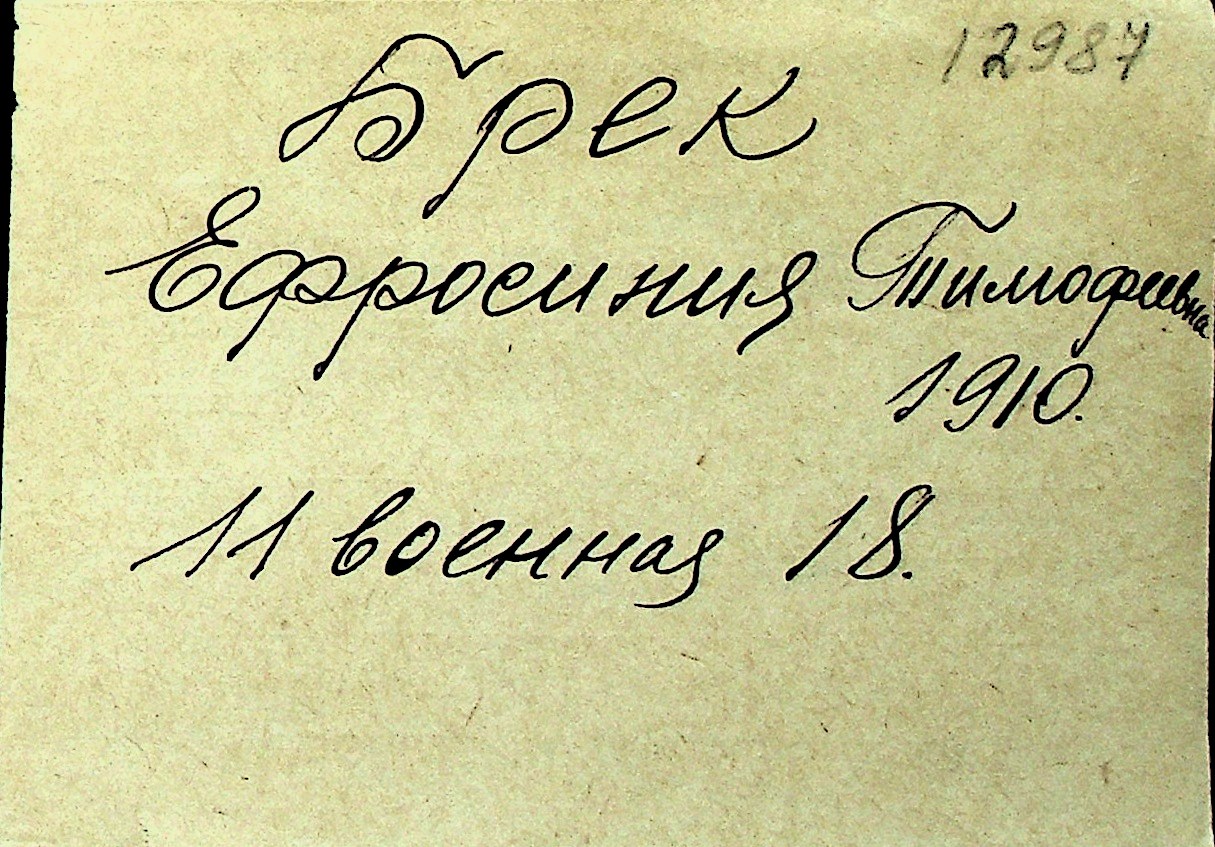 12987
Брек
Ефросиния Тимофеевна
1910.
11 военная 18.